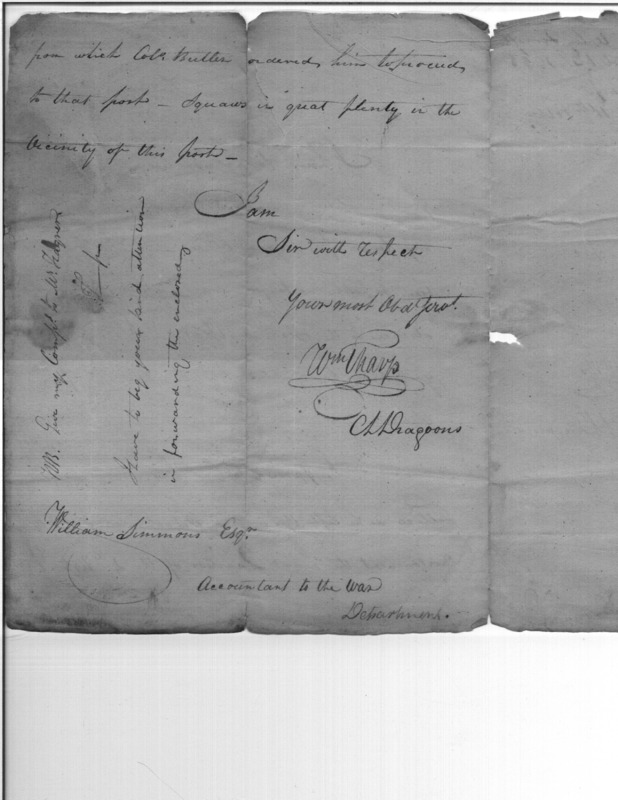 from which Col. Butler ordered him to proceed
to that post – Squaws in great plenty in the
Vicinity of this post –
I am
Sir with respect
Your most Obd. Servt.
Wm Tharp
Dragoons
NB. Give my Compts. to Mr.
I
have to beg your kind attention
in forwarding the enclosed
William Simmons Esqr.
Accountant to the War
Department.